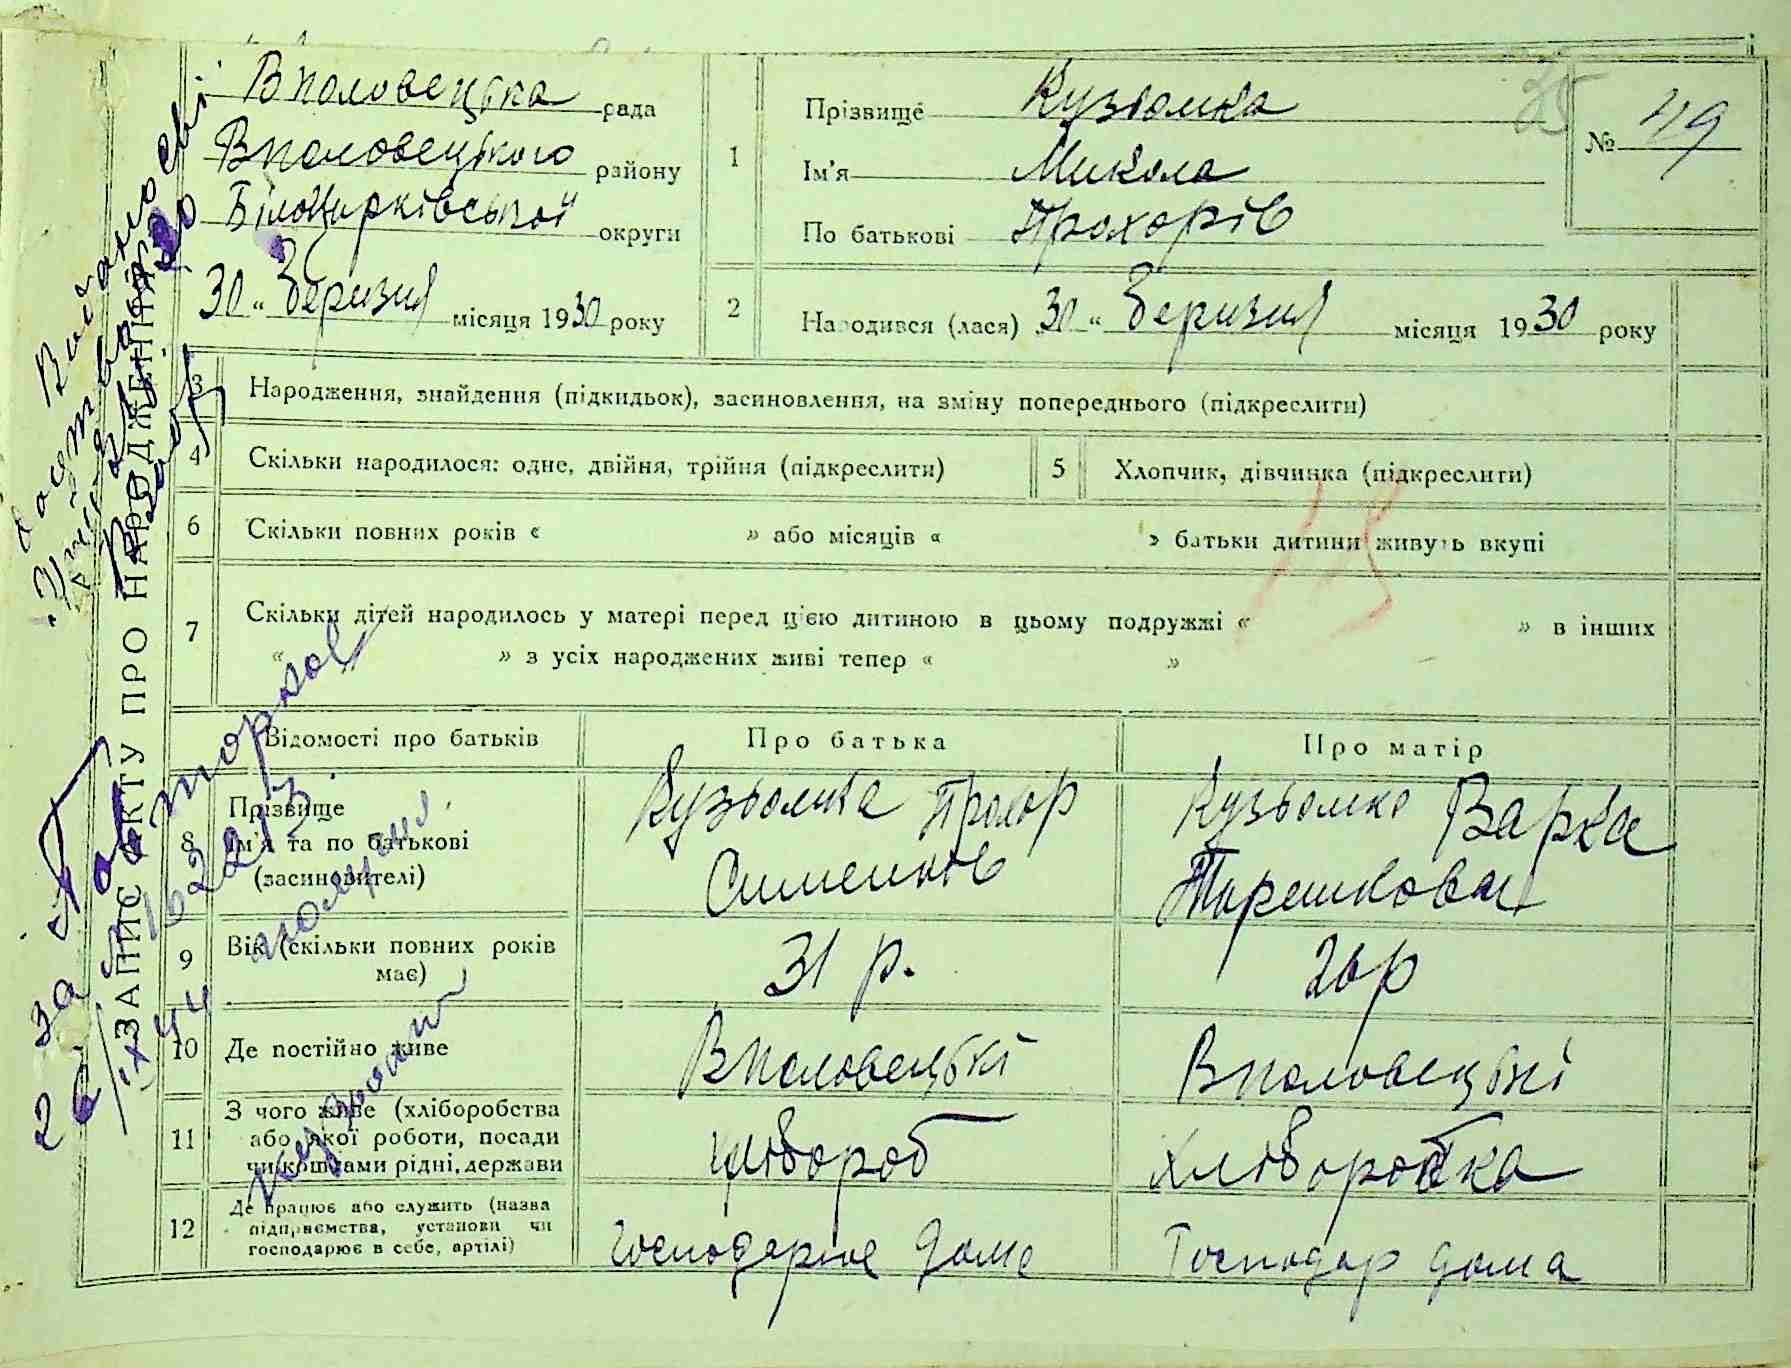 Вполовецька рада
Вполовецького району
Білоцирківської округи
30 „ березня місяця 1930 року
1
Прізвище Кузьомка
Ім'я Микола
По батькові Прохорів
№ 49
2
Народився (лася) 30 „ березня місяця 1930 року
3 Народження, знайдення (підкидьок), засиновлення, на зміну попереднього (підкреслити)
4 Скільки народилося: одне, двійня, трійня (підкреслити)
5 Хлопчик, дівчинка (підкреслити)
6 Скільки повних років « » або місяців « » батьки дитини живуть вкупі
7 Скільки дітей народилось у матері перед цією дитиною в цьому подружжі « » в інших
« » з усіх народжених живі тепер « »
Відомості про батьків
Про батька
Про матір
8 Прізвище
ім'я та по батькові
(засиновителі)
Кузьомка Прохор
Сименков
Кузьомко Варка
Терешкова
9 Вік (скільки повних років
має)
31 р.
26 р
10 Де постійно живе
Вполовецькі
Вполовецькі
11 З чого живе (хліборобства
або якої роботи, посади
чи коштами рідні, держави
хлібороб
Хліборобка
12 Де працює або служить (назва
підприємства, установи чи
господарює в себе, артілі)
Господарює дома
Господар дома
ЗАПИС АКТУ ПРО НАРОДЖЕННЯ
Видано
за
26/IX 44